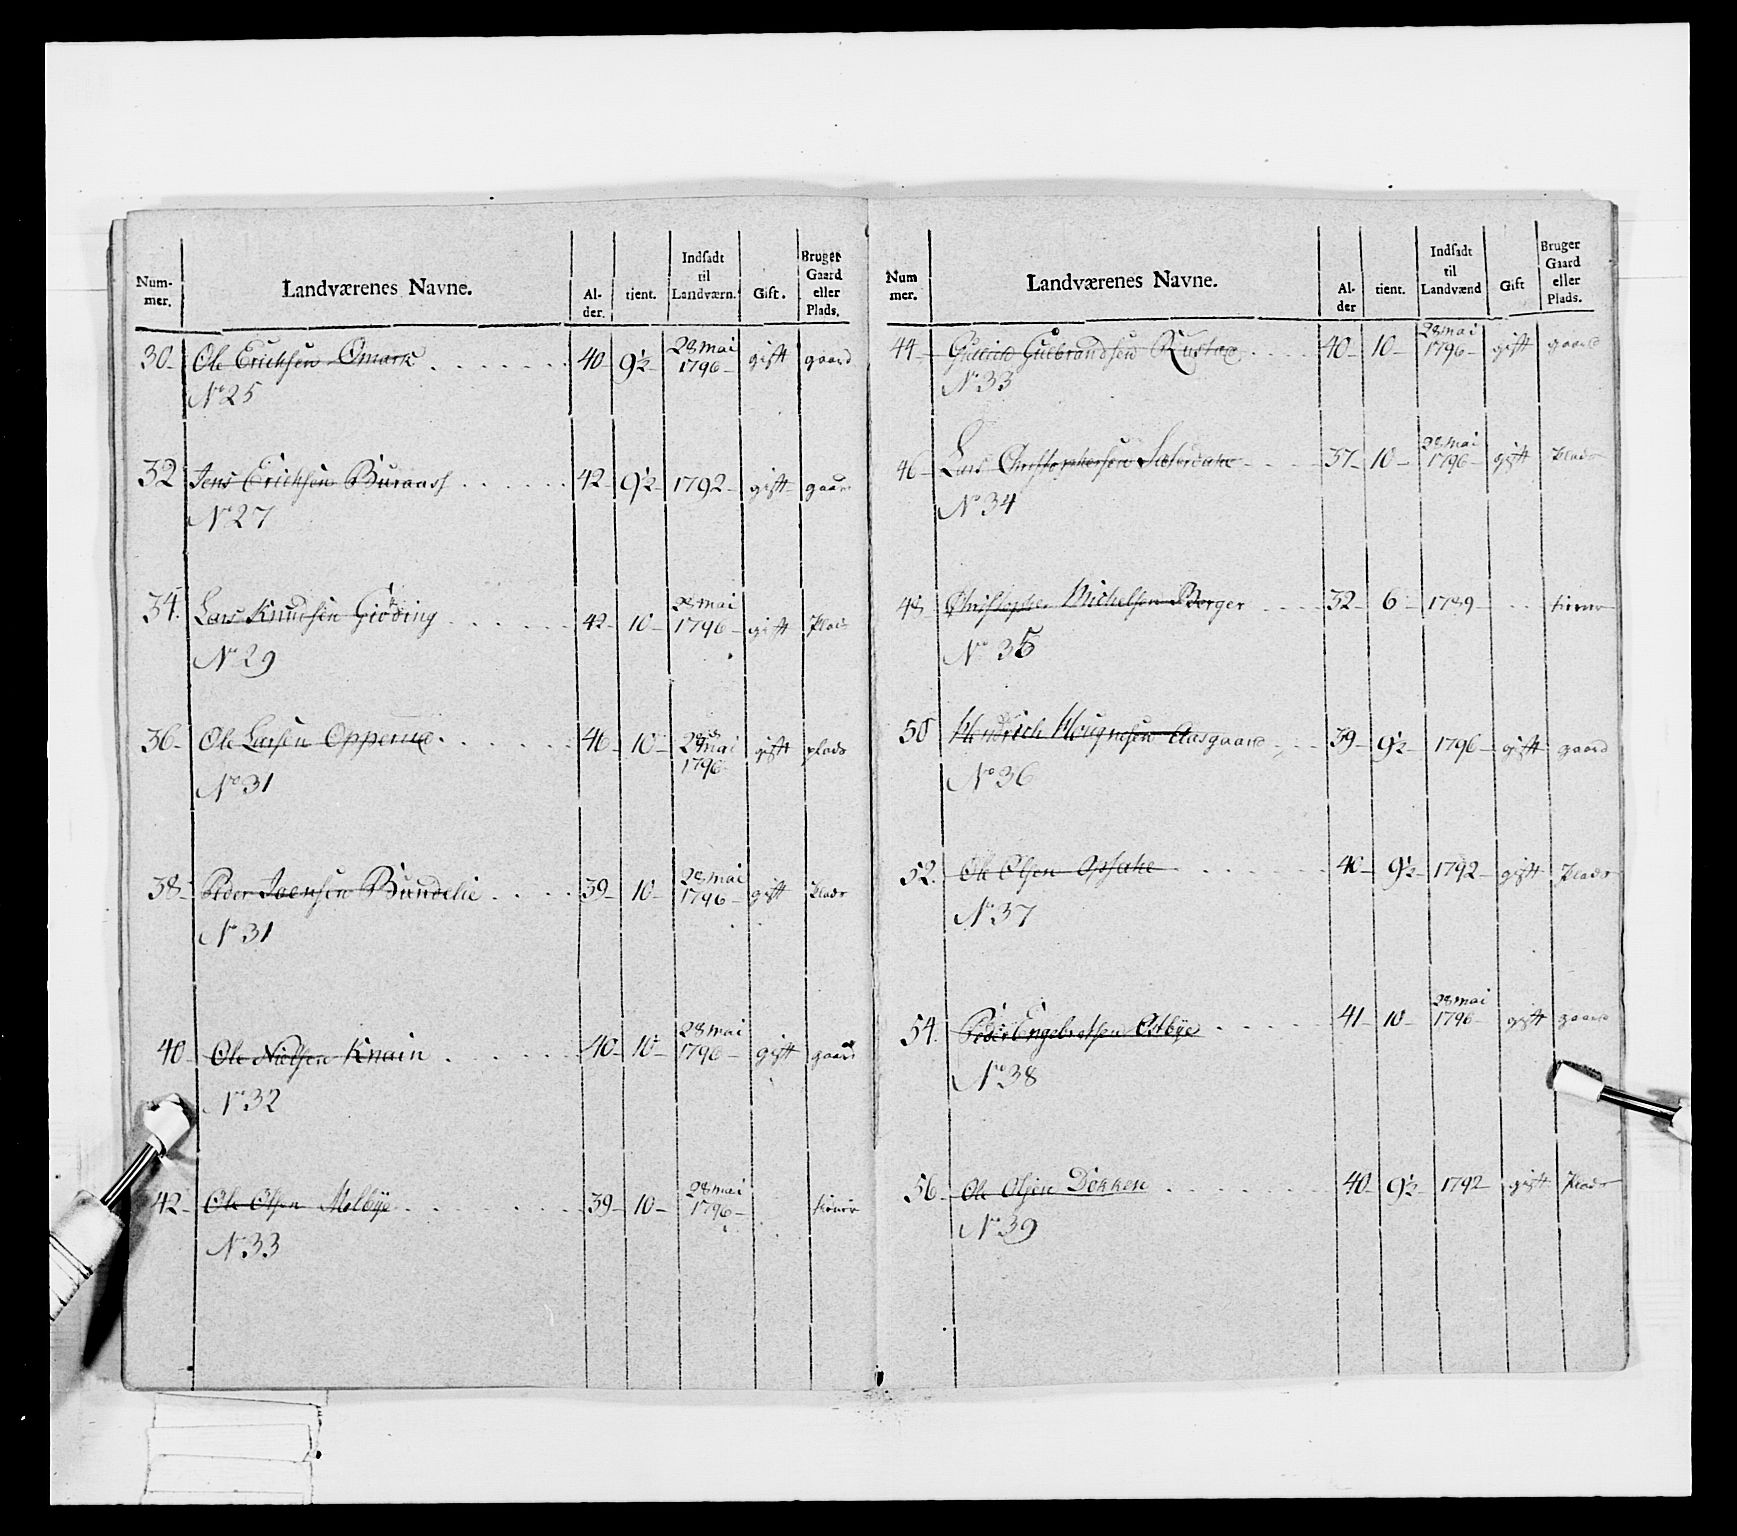 Num-
mer.
Landværenes Navne.
Al-
der.
tient.
Indsadt
til
Landværn.
Gift.
Bruger
Gaard
eller
Plads.
30- Ole Ericksen Omark 40- 9½- 28 Mai 1796- gift gaard
No 25
32 Jens Ericksen Buraas 42- 9½- 1792- gift gaard
No 27
34. Lars Knudsen Giöding 42- 10- 28 Mai 1796- gift Plads
No 29
36- Ole Larsen Opperud 46- 10- 28 Mai 1796- gift plads
No 31
38- Peder Ivensen Bundelie 39- 10- 28 Mai 1796- gift Plads
No 31
40- Ole Nielsen Knain 40- 10- 28 Mai 1796- gift gaard
No 32
42- Ole Olsen Melbÿe 39- 10- 28 Mai 1796-
No 33
Num
mer.
Landværenes Navne.
Al-
der
tient.
Indsadt
til
Landværnd
Gift
Bruger
Gaard
eller
Plads.
44- Gullick Gulbrandsen Rustad 40- 10- 28 Mai 1796- gift gaard
No 33
46- Lars Christophersen 37- 10- 28 Mai 1796- gift Plads
No 34
48 Christopher Michelsen Berger 32- 6- 1789-
No 35
50 Hendrich Aasgaard 39- 9½- 1796- gift gaard
No 36
52. Ole Olsen Opsahe 40- 9½- 1792- gift Plads
No 37
54. Peder Engebretsen Ostbÿe 41- 10- 28 Mai 1796- gift gaard
No 38
56- Ole Olsen Dokken 40- 9½- 1792 gift Plads
No 39